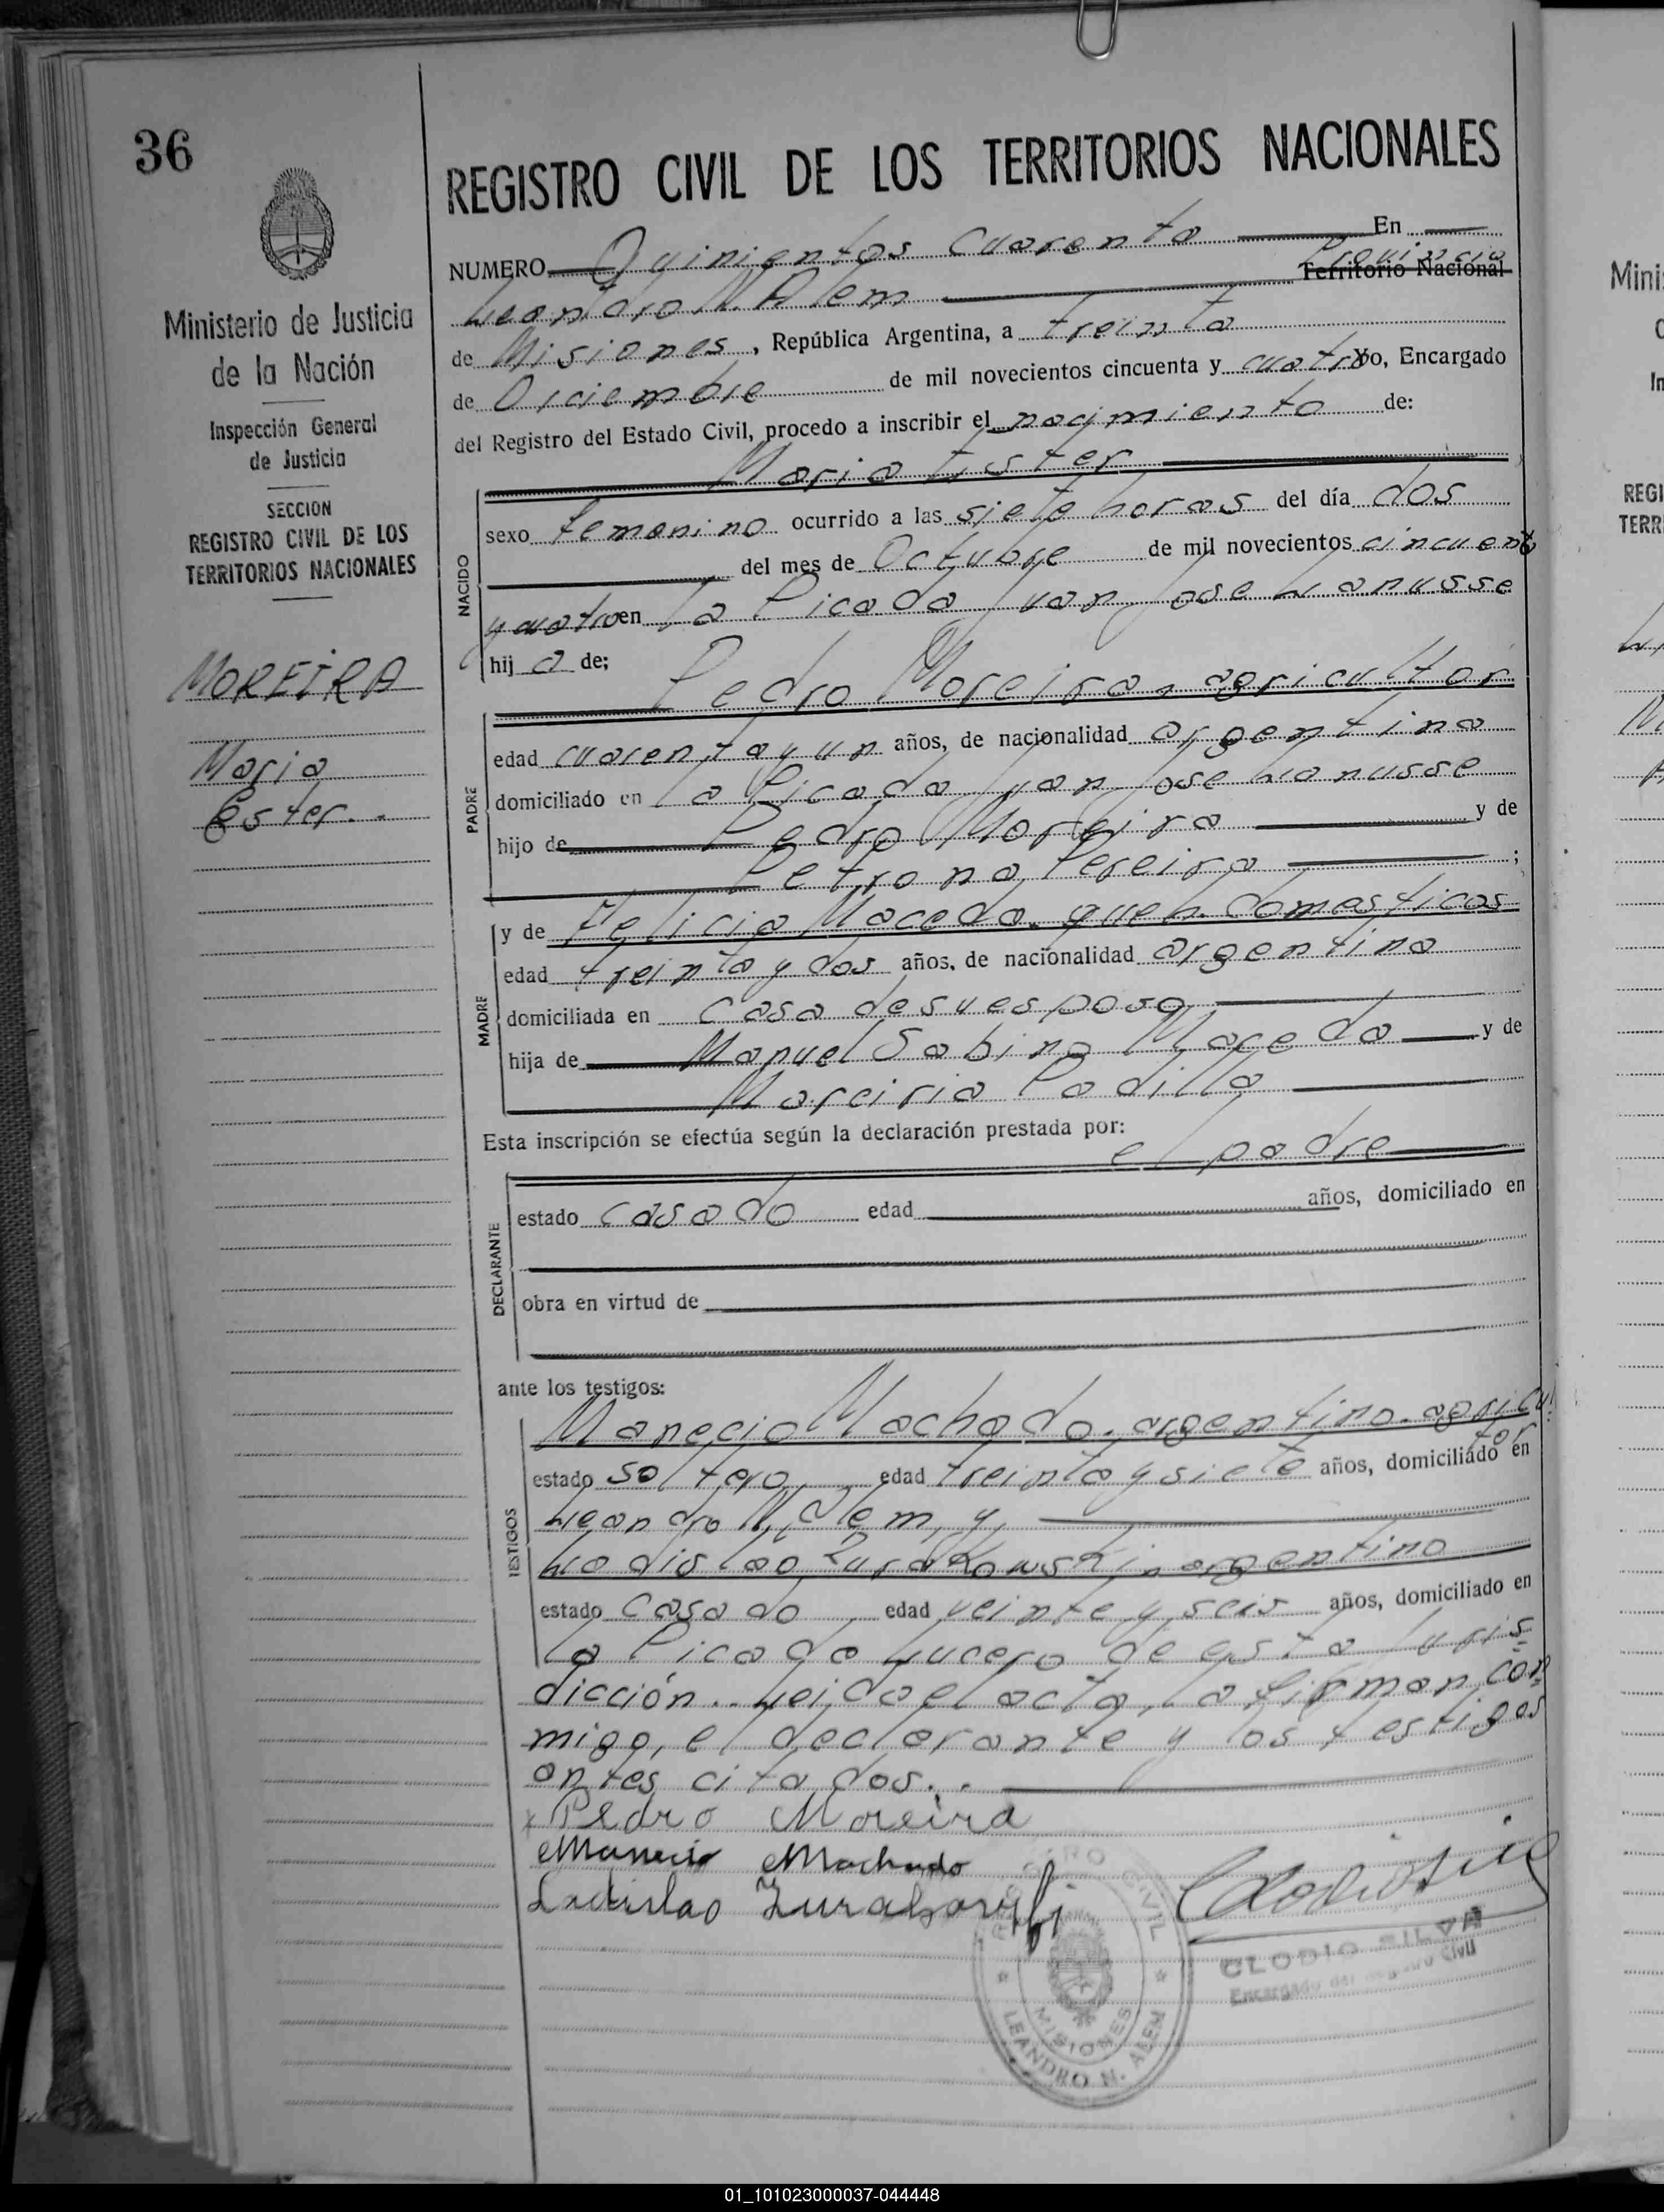 36
REGISTRO CIVIL DE LOS TERRITORIOS NACIONALES
Ministerio de Justicia
de la Nación
Inspección General
de Justicia
SECCION
REGISTRO CIVIL DE LOS
TERRITORIOS NACIONALES
MOREIRA
Maria
Ester..
NUMERO Quinientos cuarenta En
Leandro N. Alem Provincia Territorio Nacional
de Misiones, República Argentina, a treinta
de Diciembre de mil novecientos cincuenta y cuatro Yo, Encargado
del Registro del Estado Civil, procedo a inscribir el nacimiento de:
Maria Ester
NACIDO
sexo femenino ocurrido a las siete horas del día dos
del mes de Octubre de mil novecientos cincuenta
y cuatro en la Picada Juan Jose Lanusse
hij a de;
Pedro Moreira. agricultor
PADRE
edad cuarenta y un años, de nacionalidad argentina
domiciliado en la Picada Juan Jose Lanusse
hijo de Pedro Moreira y de
Petrona Pereira ;
MADRE
y de Felicia Macedo. queh. domesticos
edad treinta y dos años, de nacionalidad argentina
domiciliada en casa de su esposo
hija de Manuel Sabino Macedo y de
Marciria Padilla
Esta inscripción se efectúa según la declaración prestada por:
el padre
DECLARANTE
estado casado edad años, domiciliado en
obra en virtud de
ante los testigos:
TESTIGOS
Manecio Machado. argentino. agricul
tor
estado soltero edad treinta y siete años, domiciliado en
Leandro N. Alem, y
Ladislao Zurakowski. argentino
estado casado, edad veinte y seis años, domiciliado en
la Picada Lucero de esta Juris
dicción.. Leido el acta, la firman con
migo, el declarante y los testigos
antes citados..
x Pedro Moreira
Manecio Machado
Ladislao Zurakowski
REGISTRO CIVIL
MISIONES
LEANDRO N. ALEM
CLODIO SILVA
Encargado del Registro Civil
01_101023000037-044448